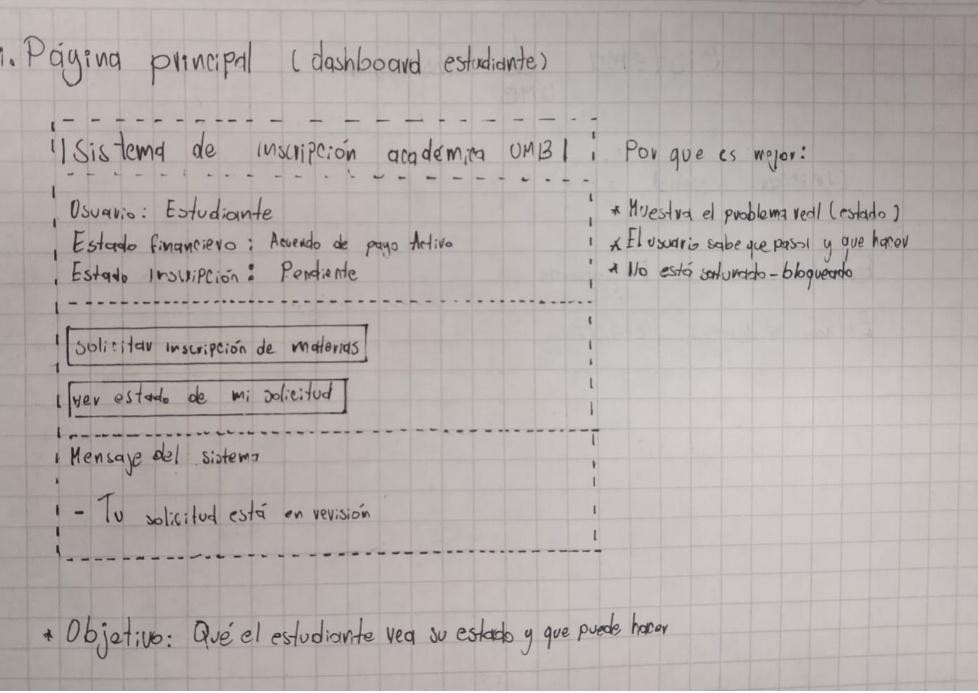 1. Página principal (dashboard estudiante)
Sistema de inscripción académica UMB
Usuario: Estudiante
Estado financiero: Acuerdo de pago Activo
Estado Inscripción: Pendiente
Solicitar inscripción de materias
ver estado de mi solicitud
Mensaje del sistema
- Tu solicitud está en revisión
Por que es mejor:
* Muestra el problema real (estado)
* El usuario sabe que pasa y que hacer
* No está saturado-bloqueado
* Objetivo: Qué el estudiante vea su estado y que puede hacer